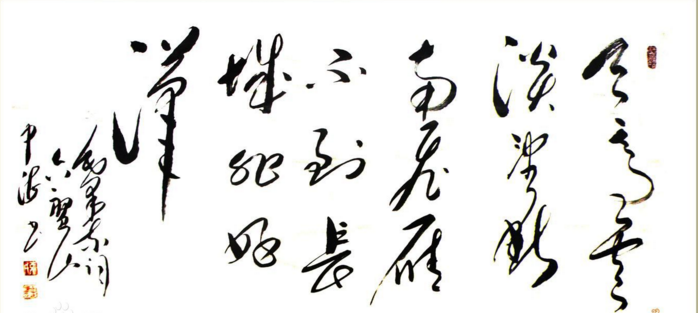 天高云
淡望断
南飞雁
不到長
城非好
漢
毛泽东词
六盘山
书